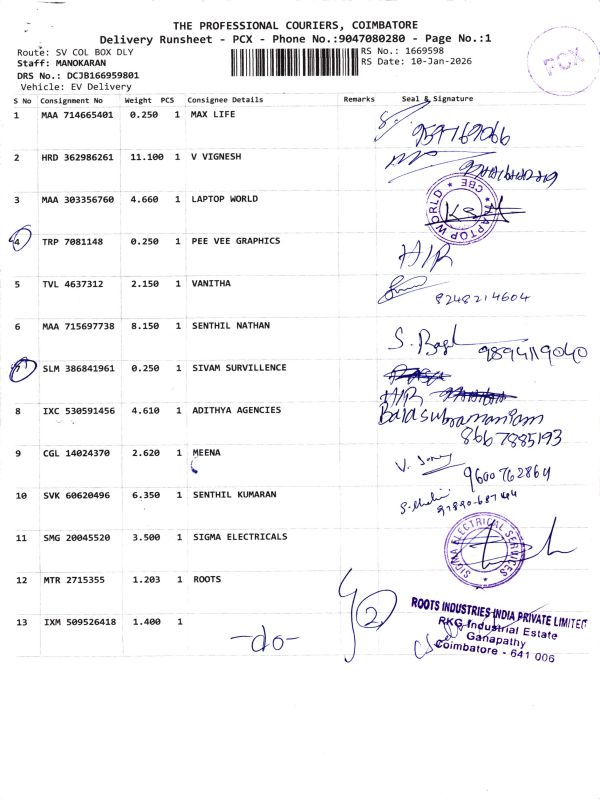 THE PROFESSIONAL COURIERS, COIMBATORE
Delivery Runsheet - PCX - Phone No.:9047080280 - Page No.:1
Route: SV COL BOX DLY
RS No.: 1669598
Staff: MANOKARAN
RS Date: 10-Jan-2026
DRS No.: DCJB166959801
Vehicle: EV Delivery
PCX
S No Consignment No Weight PCS Consignee Details Remarks Seal & Signature
1 MAA 714665401 0.250 1 MAX LIFE
2 HRD 362986261 11.100 1 V VIGNESH
3 MAA 303356760 4.660 1 LAPTOP WORLD
LAPTOP WORLD * CBE *
4 TRP 7081148 0.250 1 PEE VEE GRAPHICS H/R
5 TVL 4637312 2.150 1 VANITHA 8248214604
6 MAA 715697738 8.150 1 SENTHIL NATHAN
9894119040
7 SLM 386841961 0.250 1 SIVAM SURVILLENCE
H/R
8 IXC 530591456 4.610 1 ADITHYA AGENCIES Balasubramaniam
8667885193
9 CGL 14024370 2.620 1 MEENA
9600762864
10 SVK 60620496 6.350 1 SENTHIL KUMARAN
11 SMG 20045520 3.500 1 SIGMA ELECTRICALS
SIGMA ELECTRICAL SERVICES
12 MTR 2715355 1.203 1 ROOTS
2
ROOTS INDUSTRIES INDIA PRIVATE LIMITED
RKG Industrial Estate
Ganapathy
Coimbatore - 641 006
13 IXM 509526418 1.400 1
-do-